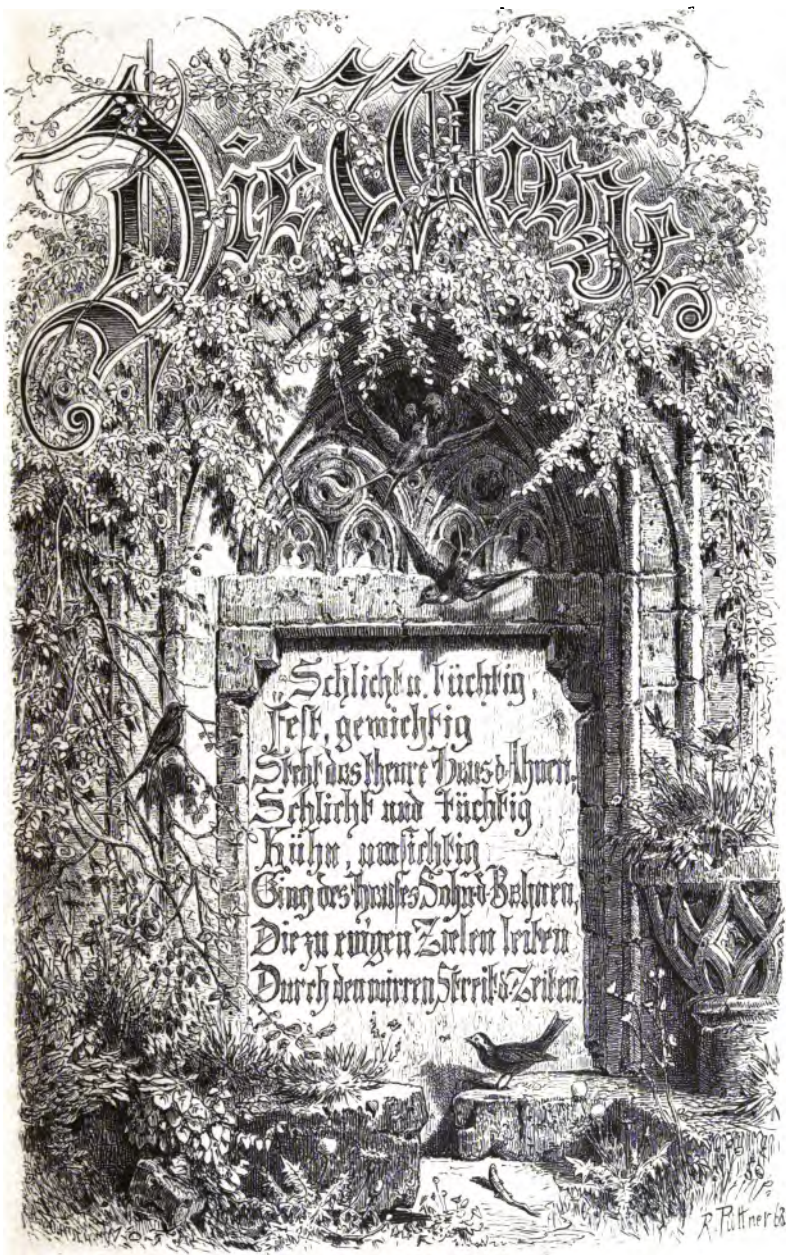 Die Wiege
„Schlicht u. tüchtig,
Fest, gewichtig
Steht das theure Haus d. Ahnen.
Schlicht und tüchtig
Kühn, umsichtig
Ging des Hauses Sohn d. Bahnen,
Die zu ewigen Zielen leiten
Durch den wirren Streit d. Zeiten.
R. Püttner 68